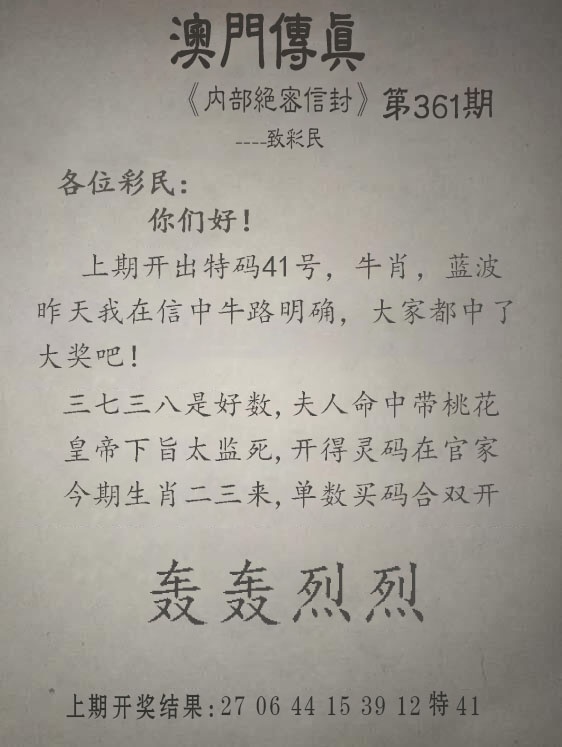 澳門傳真
《内部絕密信封》第361期
----致彩民
各位彩民:
你们好!
上期开出特码41号，牛肖，蓝波
昨天我在信中牛路明确，大家都中了
大奖吧!
三七三八是好数,夫人命中带桃花
皇帝下旨太监死,开得灵码在官家
今期生肖二三来,单数买码合双开
轰轰烈烈
上期开奖结果:27 06 44 15 39 12 特 41